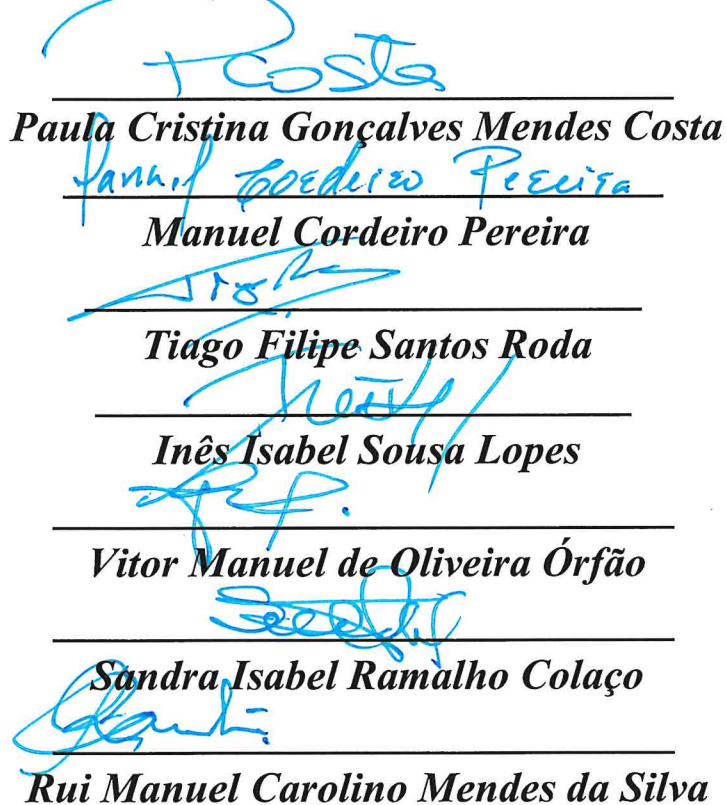 P Costa
Paula Cristina Gonçalves Mendes Costa
Manuel Cordeiro Pereira
Manuel Cordeiro Pereira
Tiago Filipe Santos Roda
Inês Isabel Sousa Lopes
Vitor Manuel de Oliveira Órfão
Sandra Isabel Ramalho Colaço
Rui Manuel Carolino Mendes da Silva